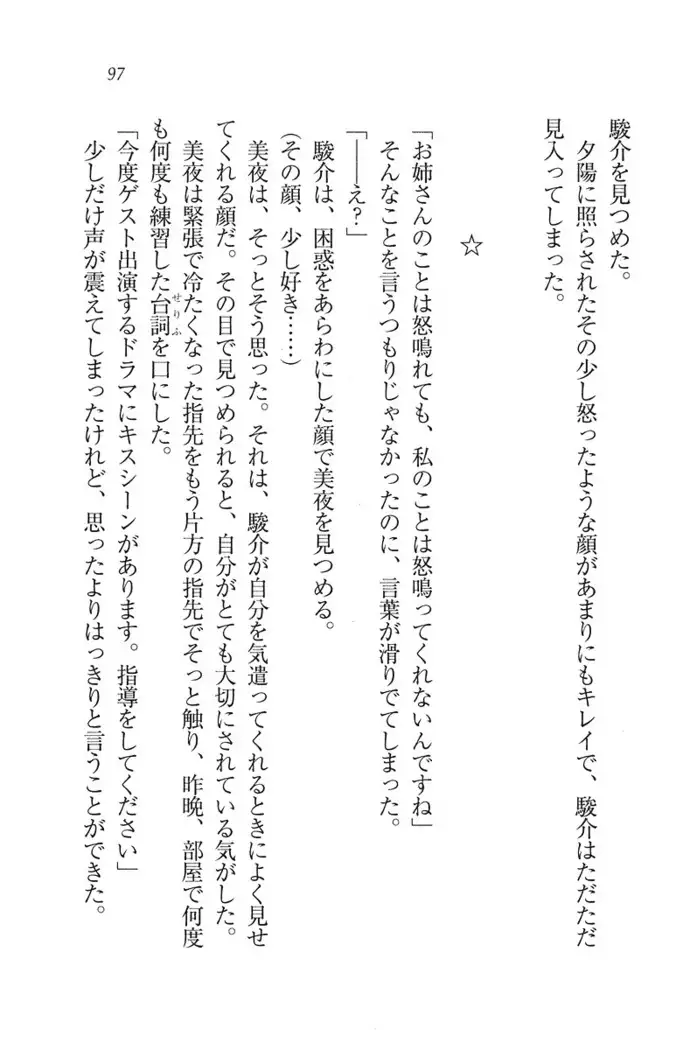 97
駿介を見つめた。
夕陽に照らされたその少し怒ったような顔があまりにもキレイで、駿介はただただ
見入ってしまった。
☆
「お姉さんのことは怒鳴れても、私のことは怒鳴ってくれないんですね」
そんなことを言うつもりじゃなかったのに、言葉が滑りでてしまった。
「――え?」
駿介は、困惑をあらわにした顔で美夜を見つめる。
(その顔、少し好き……)
美夜は、そっとそう思った。それは、駿介が自分を気遣ってくれるときによく見せ
てくれる顔だ。その目で見つめられると、自分がとても大切にされている気がした。
美夜は緊張で冷たくなった指先をもう片方の指先でそっと触り、昨晩、部屋で何度
も何度も練習した台詞を口にした。
せりふ
「今度ゲスト出演するドラマにキスシーンがあります。指導をしてください」
少しだけ声が震えてしまったけれど、思ったよりはっきりと言うことができた。